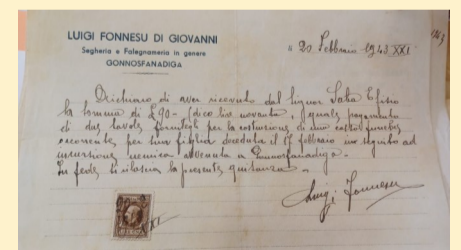 LUIGI FONNESU DI GIOVANNI
Segheria e Falegnameria in genere
GONNOSFANADIGA
li 20 Febbraio 1943 XXI.
Dichiaro di aver ricevuto dal Signor Saba Efisio
la somma di £ 90 = (dico lire novanta), quale pagamento
di due tavole fornitegli per la costruzione di una cassa funebre
occorrente per sua figlia deceduta il 17 febbraio in seguito ad
incursione nemica avvenuta a Gonnosfanadiga.
In fede si rilascia la presente quitanza.
Luigi Fonnesu